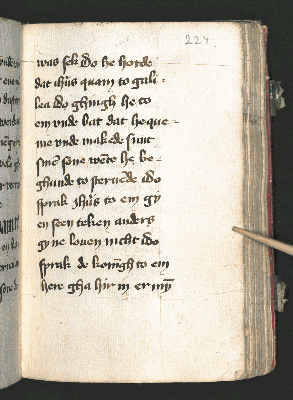 224
was sek ido he horde
dat ihūs quam to gali-
lea ido ghingh he to
em vnde bat dat he que-
me vnde makede sunt
sinē sone wēte he be-
ghunde to steruēde ido
sprak ihūs to em gy
en seen teken anders
gy ne louen nicht ido
sprak de konīgh to em
here gha hir in er myn